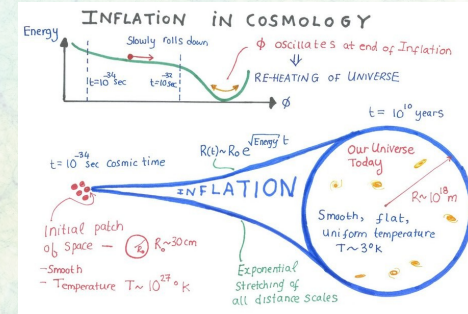 INFLATION IN COSMOLOGY
Energy
Slowly rolls down
t=10^-34 sec
t=10^-32 sec
φ
φ oscillates at end of Inflation
⇓
RE-HEATING OF UNIVERSE
t = 10^10 years
t = 10^-34 sec cosmic time
R(t)~R₀ e^√Energy t
INFLATION
Our Universe
Today
R~10^18 m
Smooth, flat,
uniform temperature
T~3°K
Initial patch
of space – R₀ R₀~30cm
-Smooth
- Temperature T~10^27 °K
Exponential
Stretching of
all distance scales